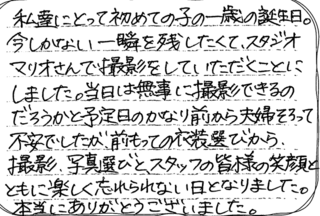 私達にとって初めての子の一歳の誕生日。
今しかない一瞬を残したくて、スタジオ
マリオさんで撮影をしていただくことに
しました。当日は無事に撮影できるの
だろうかと予定日のかなり前から夫婦そろって
不安でしたが前もっての衣装選びから、
撮影、写真選びと、スタッフの皆様の笑顔と
ともに楽しく忘れられない日となりました。
本当にありがとうございました。